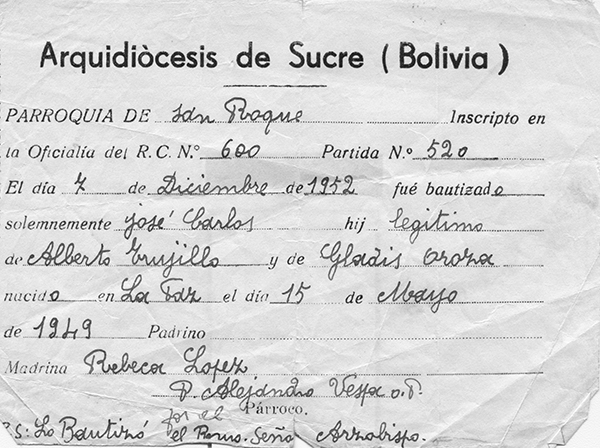 Arquidiòcesis de Sucre ( Bolivia )
PARROQUIA DE San Roque Inscripto en
la Oficialía del R. C. N.º 600 Partida N.º 520
El día 7 de Diciembre de 1952 fué bautizado
solemnemente José Carlos hij legitimo
de Alberto Trujillo y de Gladis Oroza
nacido en La Paz el día 15 de Mayo
de 1949 Padrino
Madrina Rebeca Lopez
P. Alejandro Vespa O.P.
por el Párroco.
P.S: Lo Bautizó el Rvmo. Señor Arzobispo.